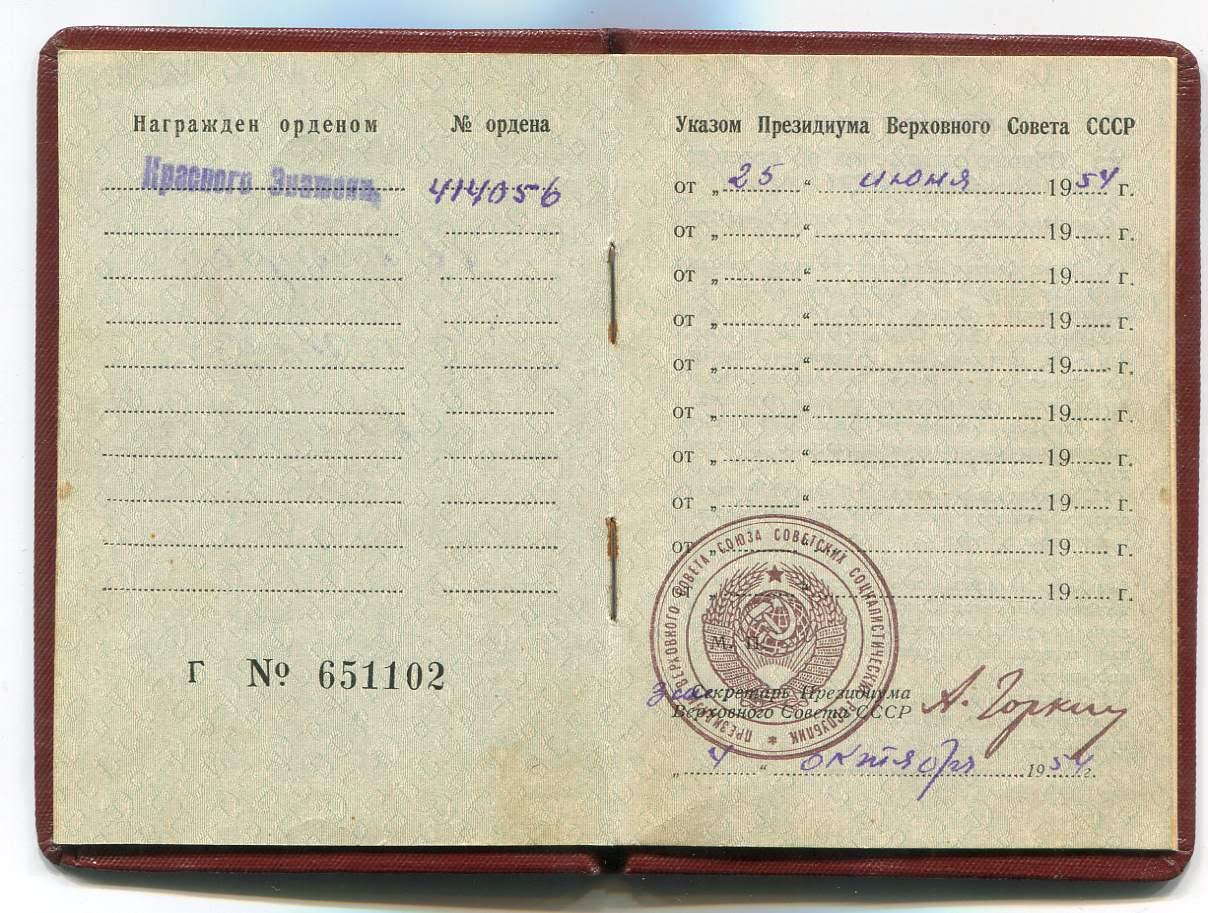 Награжден орденом № ордена
Красного Знамени 414056
Г № 651102
Указом Президиума Верховного Совета СССР
от „ 25 “ июня 1954 г.
от „ “ 19 г.
от „ “ 19 г.
от „ “ 19 г.
от „ “ 19 г.
от „ “ 19 г.
от „ “ 19 г.
от „ “ 19 г.
от „ “ 19 г.
„ “ 19 г.
ПРЕЗИДИУМ ВЕРХОВНОГО СОВЕТА СОЮЗА СОВЕТСКИХ СОЦИАЛИСТИЧЕСКИХ РЕСПУБЛИК
М. П.
за Секретарь Президиума
Верховного Совета СССР
А. Горкин
„ 4 “ октября 1954 г.